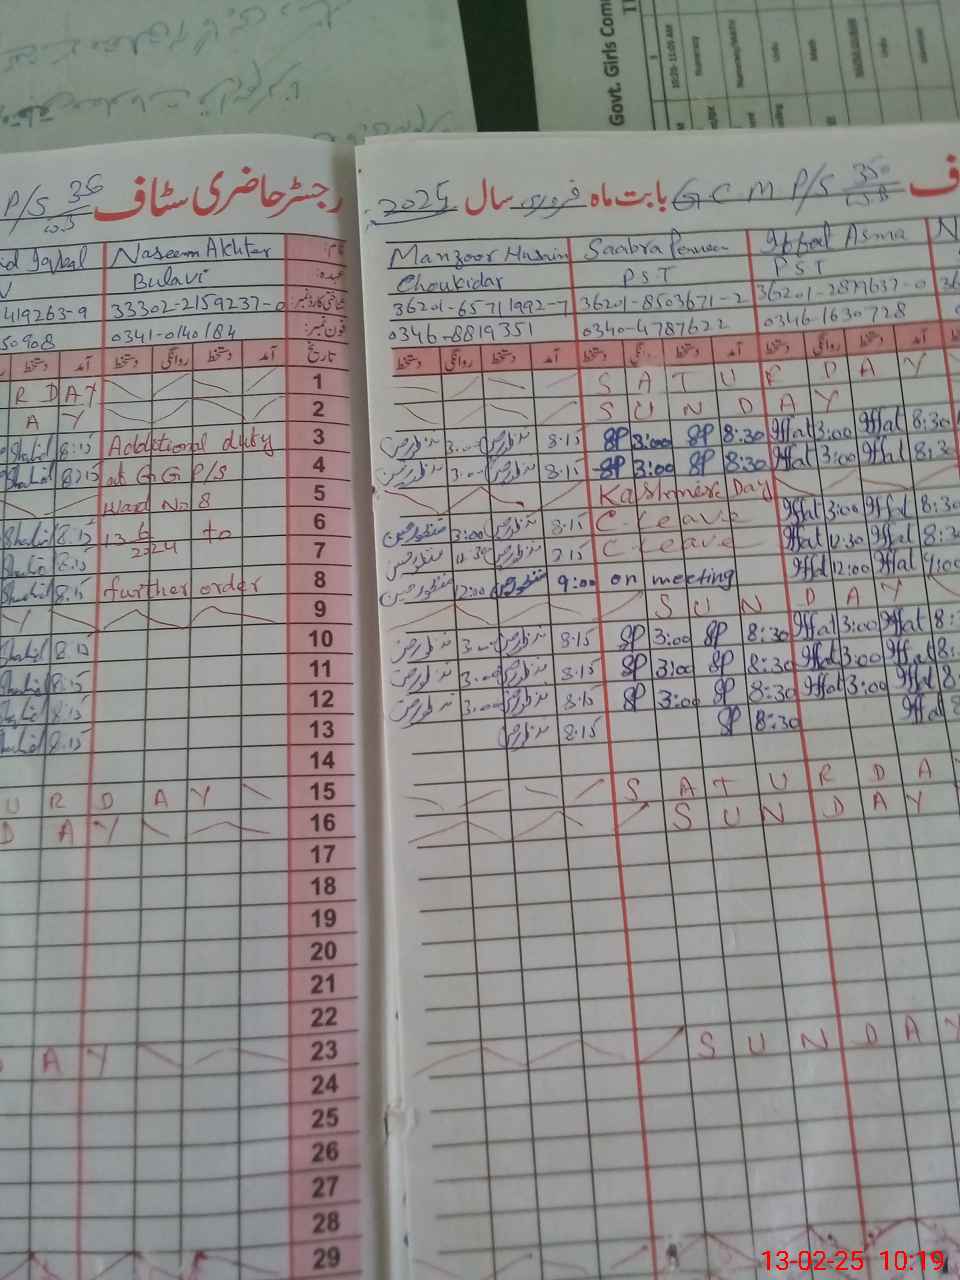 Govt. Girls Com
P/S 36
رجسٹر حاضری سٹاف
id Iqbal Naseem Akhter نام:
Bulavi عہدہ:
419263-9 33302-2159237-0 شناختی کارڈ نمبر:
50908 0341-0140184 فون نمبر:
آمد دستخط روانگی دستخط آمد تاریخ
R D A Y 1
A Y 2
Shahid 8:15 Additional duty 3
Shahid 8:15 at GG P/S 4
Ward No 8 5
Shahid 8:15 13 6 2024 to 6
Shahid 8:15 7
Shahid 8:15 further order 8
Y 9
Shahid 8:15 10
Shahid 8:15 11
Shahid 8:15 12
Shahid 8:15 13
14
U R D A Y 15
D A Y 16
17
18
19
20
21
22
D A Y 23
24
25
26
27
28
29
ف G C M P/S 350 W.B بابت ماہ فروری سال 2025
Manzoor Husain Saabra Perveen Iffat Asma N
Choukidar PST PST
36201-6571992-7 36201-8503671-2 36201-2879637-0 36
0346-8819351 0340-4787622 0346-1630728
دستخط روانگی دستخط آمد دستخط روانگی دستخط آمد دستخط روانگی دستخط آمد
S A T U R D A Y
S U N D A Y
منظور حسین 3:00 منظور حسین 8:15 SP 3:00 SP 8:30 Iffat 3:00 Iffat 8:30
منظور حسین 3:00 منظور حسین 8:15 SP 3:00 SP 8:30 Iffat 3:00 Iffat 8:30
Kashmire Day
منظور حسین 3:00 منظور حسین 8:15 C-Leave Iffat 3:00 Iffat 8:30
منظور حسین 12:30 منظور حسین C-Leave Iffat 12:30 Iffat 8:30
منظور حسین 12:00 منظور حسین 9:00 on meeting Iffat 12:00 Iffat 9:00
S U N D A Y
منظور حسین 3:00 منظور حسین 8:15 SP 3:00 SP 8:30 Iffat 3:00 Iffat 8:
منظور حسین 3:00 منظور حسین 8:15 SP 3:00 SP 8:30 Iffat 3:00 Iffat 8:
منظور حسین 3:00 منظور حسین 8:15 SP 3:00 SP 8:30 Iffat 3:00 Iffat 8:
منظور حسین 8:15 SP 8:30 Iffat 8
S A T U R D A
S U N D A Y
S U N D A Y
13-02-25 10:19